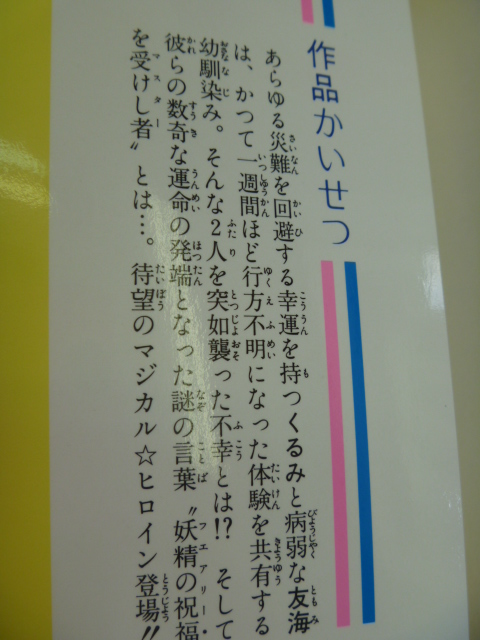 作品かいせつ
あらゆる災難を回避する幸運を持つくるみと病弱な友海
は、かつて一週間ほど行方不明になった体験を共有する
幼馴染み。そんな2人を突如襲った不幸とは!? そして
彼らの数奇な運命の発端となった謎の言葉〝妖精の祝福
を受けし者〟とは…。待望のマジカル☆ヒロイン登場!!